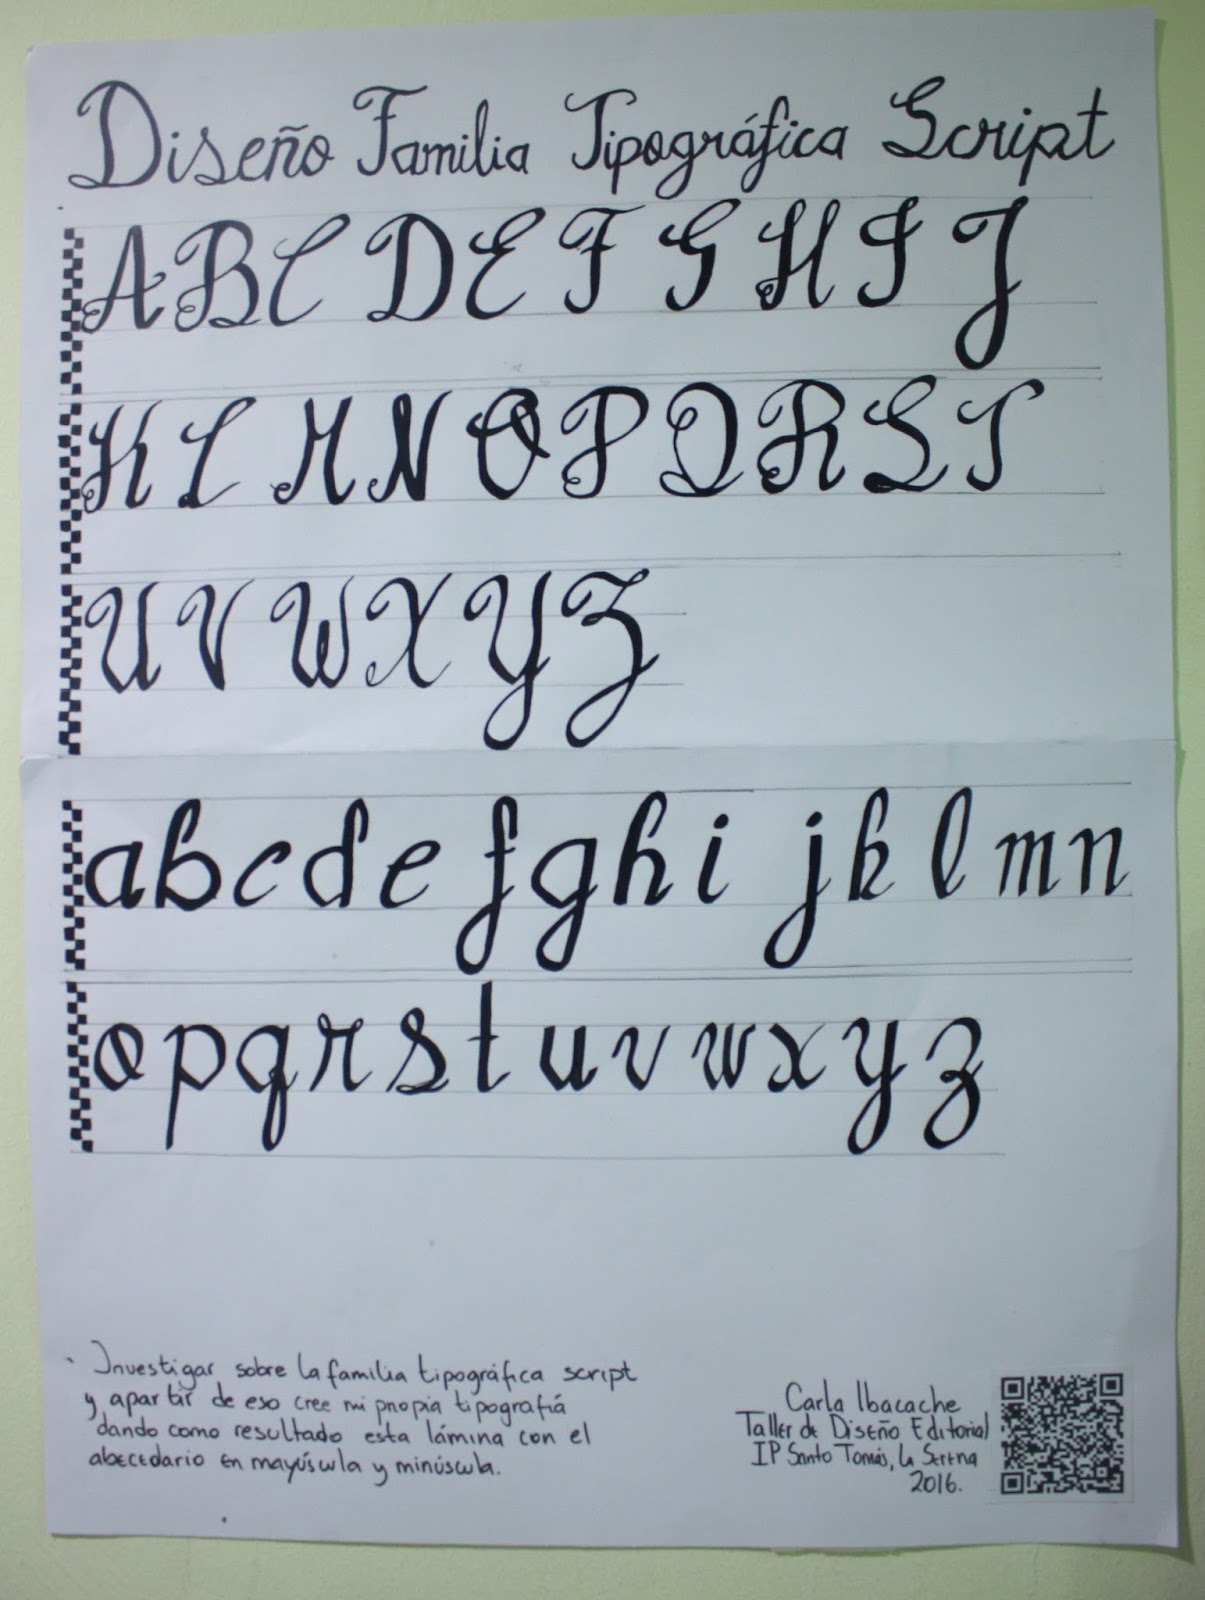 Diseño Familia Tipográfica Script
A B C D E F G H I J
K L M N O P Q R S T
U V W X Y Z
a b c d e f g h i j k l m n
o p q r s t u v w x y z
Investigar sobre la familia tipográfica script
y apartir de eso cree mi propia tipografiá
dando como resultado esta lámina con el
abecedario en mayúscula y minúscula.
Carla Ibacache
Taller de Diseño Editorial
IP Santo Tomás, La Serena
2016.